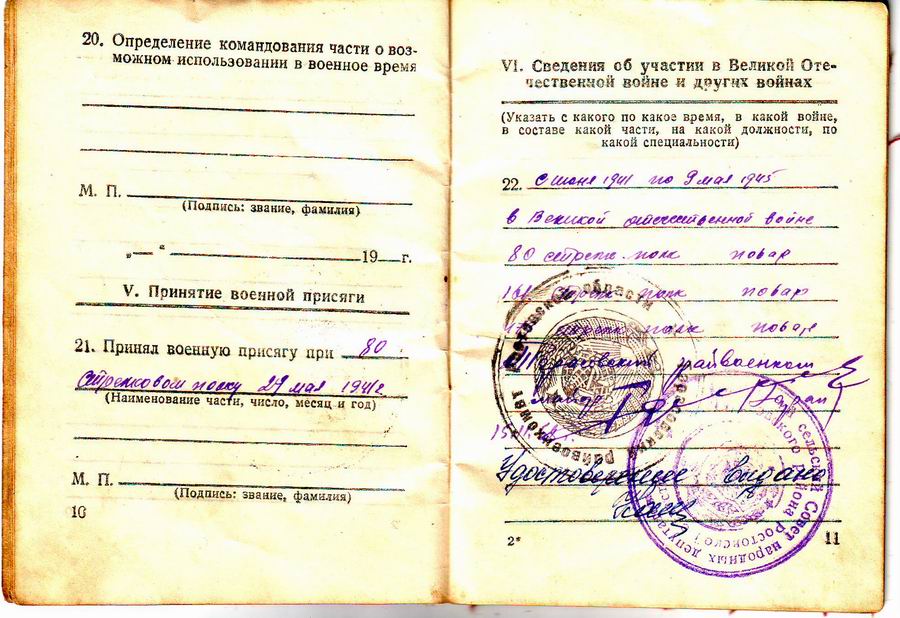 20. Определение командования части о воз-
можном использовании в военное время
М. П.
(Подпись: звание, фамилия)
„— “ 19 г.
V. Принятие военной присяги
21. Принял военную присягу при 80
стрелковом полку 29 мая 1941г.
(Наименование части, число, месяц и год)
М. П.
(Подпись: звание, фамилия)
10
VI. Сведения об участии в Великой Оте-
чественной войне и других войнах
(Указать с какого по какое время, в какой войне,
в составе какой части, на какой должности, по
какой специальности)
22. с июня 1941 по 9 мая 1945
в Великой отечественной войне
80 полк повар
полк повар
полк повар
райвоенком
майор
Удостоверение выдано
2*
11
Ростовской области
райвоенкомат
сельский Совет народных депутатов
Ростовской